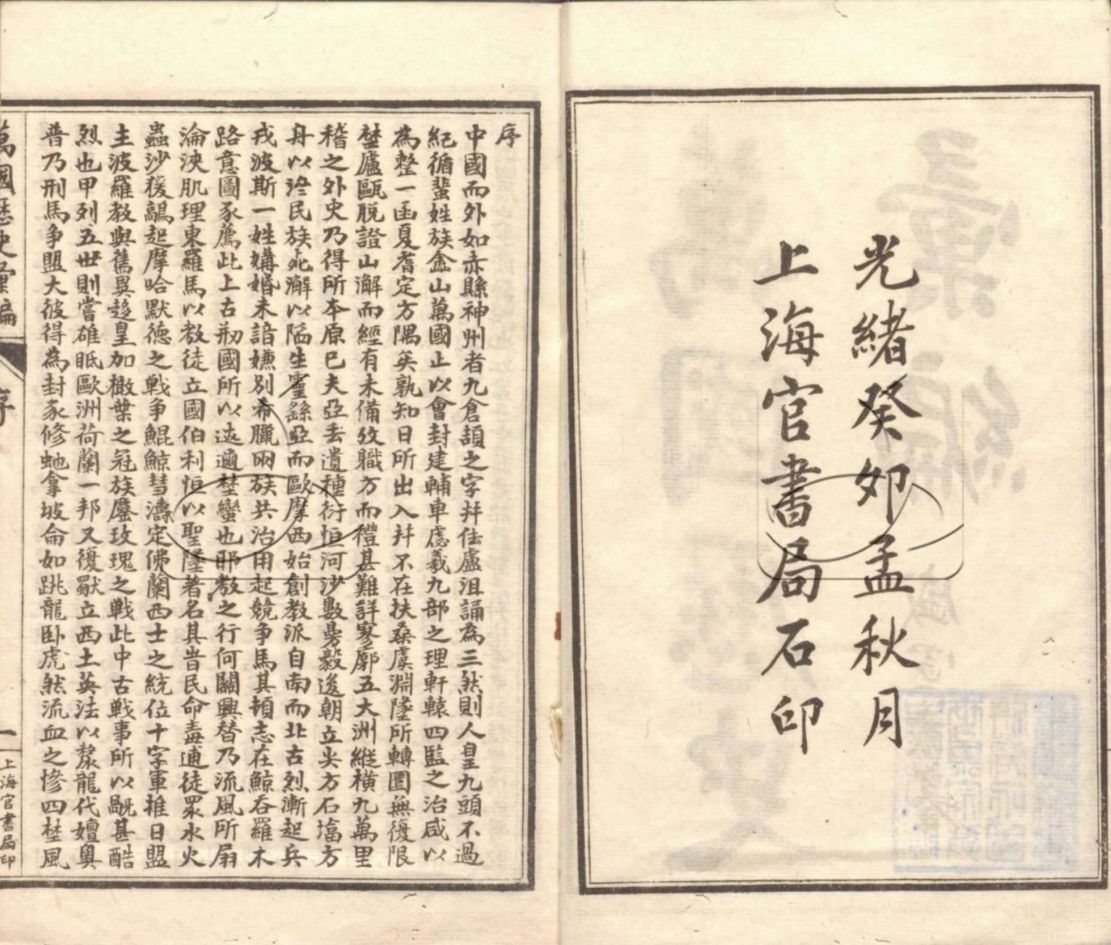 光緒癸卯孟秋月
上海官書局石印
序
中國而外如赤縣神州者九倉頡之字幷佉盧沮誦為三然則人皇九頭不過
紀循蜚姓族𡺸山萬國止以會封建輔車慮羲九部之理軒轅四監之治咸以
為整一函夏耆定方隅矣孰知日所出入幷不在扶桑虞淵墜所轉圜無復限
埜廬甌脫證山澥而經有未備攷職方而禮甚難詳寥廓五大洲縱橫九萬里
稽之外史乃得所本原已夫亞丢遺種衍恒河沙數曼毅逡朝立尖方石墖方
舟以拯民族死澥以陷生靈繇亞而歐摩西始創教派自南而北古烈漸起兵
戎波斯一姓媾婚未諳嫌別希臘兩族共治用起競争馬其頓志在鯨吞羅木
路意圖豕薦此上古刱國所以遠邇埜蠻也耶教之行何關興替乃流風所扇
淪浹肌理東羅馬以教徒立國伯利恒以聖墜著名其旹民命毒逋徒眾水火
蟲沙猨鶴起摩哈默德之戰争鯤鯨彗濤定佛蘭西士之統位十字軍推日盟
主波羅教與舊異趍皇加橄葉之冠族鏖玫瑰之戰此中古戰事所以甌甚酷
烈也甲列五世則嘗雄眂歐洲荷蘭一邦又復獸立西土英法以漦龍代嬗奧
普乃刑馬争盟大彼得為封豕修虵拿坡侖如跳龍卧虎然流血之慘四埜風
萬國歷史彙編
序
一
上海官書局印